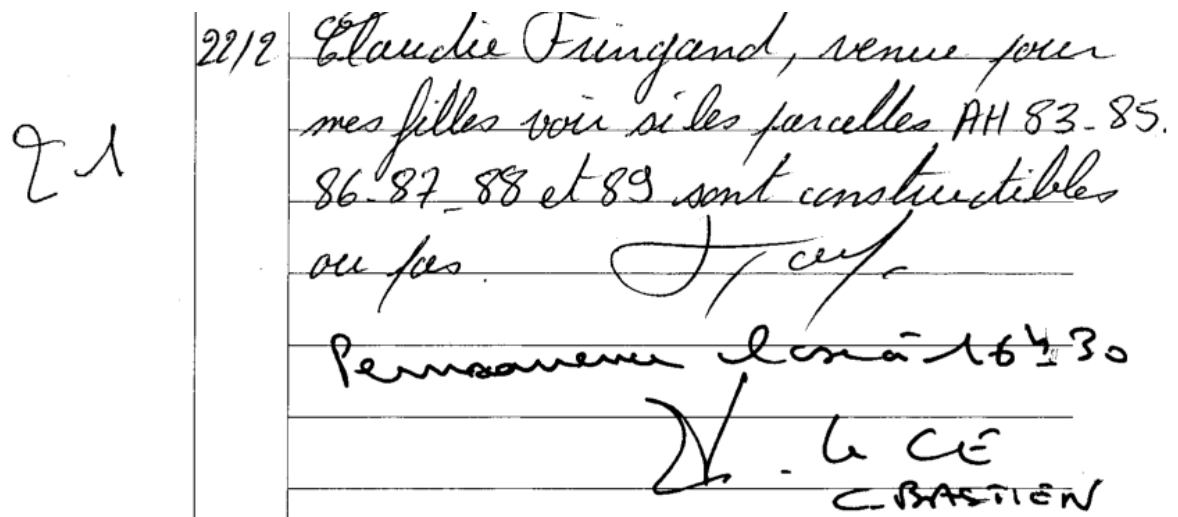 22/2 Claudie Fringand, venue pour
mes filles voir si les parcelles AH 83-85.
21
86-87_88 et 89 sont constructibles
ou pas.
Permanence close à 16h30
le CE
C. BASTIEN